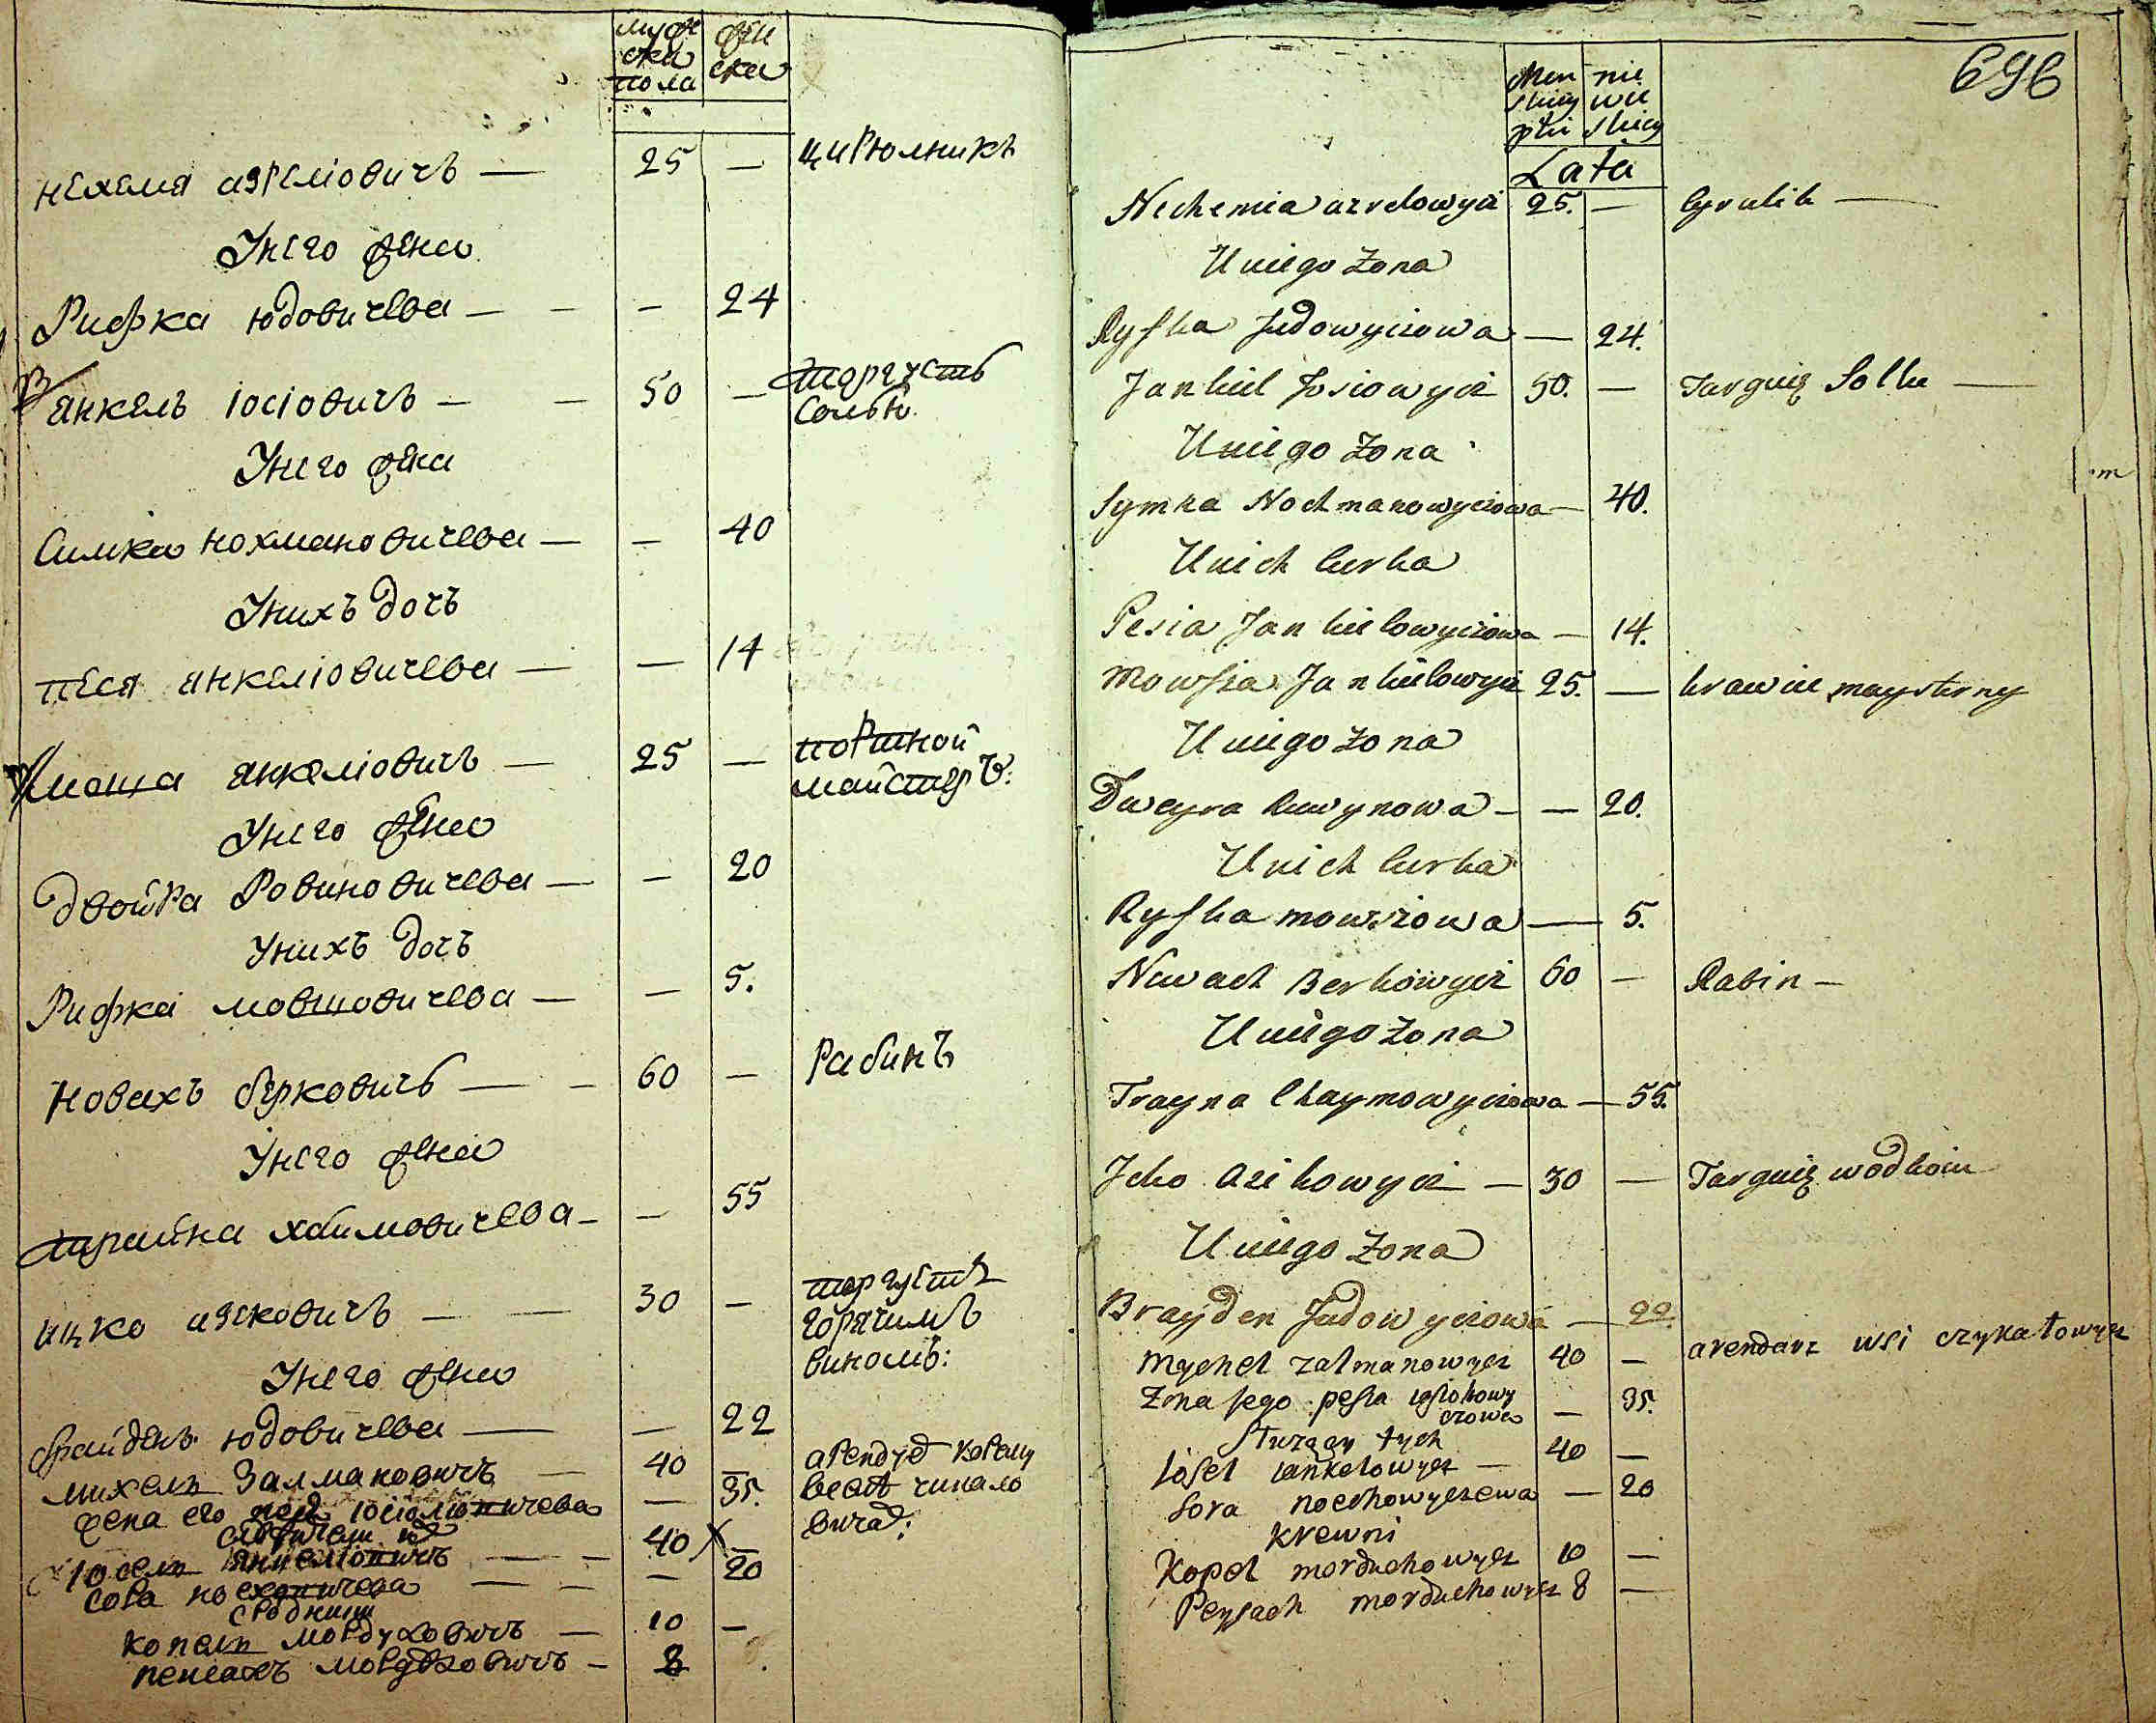 муже
ска
пола
жен
ска
нехемя азрелiовичъ — 25 — цирюлникъ
У него жена
Рифка юдовичева — — — 24
янкель iосiовичъ — — 50 — торгуетъ
солью.
У него жена
Симка нохмановичева — — 40
У нихъ дочъ
песя янкелiовичева — — 14
мошка янкелiовичъ — 25 — портной
майстеръ:
У него жена
двойра Ровиновичева — — 20
У нихъ дочъ
Рифка мовшовичева — — 5.
Новахъ берковичъ — — 60 — Рабинъ
У него жена
трайна хаимовичева — — 55
ицко азиковичъ — — 30 — торгуетъ
горячимъ
виномъ:
У него жена
брайденъ юдовичева — — 22
михель Залмановичъ — 40 —
жена его песя — 35.
iосель янкелiовичъ — — 40 —
сора ноеховичева — — — 20
сродники
копель мордуховичъ — 10 —
пейсахъ мордуховичъ — 8
696
Men
skiey
płci
nie
wie
skiey
Lata
Nechemia azrelowycz 25. — Cyrulik —
U niego Zona
Ryfka Judowyczowa — 24.
Jankiel Josiowycz 50. — Targuię Solką —
U niego Zona
Symka Nochmanowyczowa — 40.
U nich Curka
Pesia Jankielowyczowa — 14.
Mowsza Jankielowycz 25. — krawiec maysterny
U niego Zona
Dweyra Ruwynowa — — 20.
U nich Curka
Ryfka mowszowa — 5.
Nowach Berkowycz 60 — Rabin —
U niego Zona
Trayna Chaymowyczowa — 55.
Jcko Azikowycz — 30 — Targuię wodkoiu
U niego Zona
Brayden Judowyczowa — 22.
Mychel zalmanowycz 40 — arendarz wsi czykałowycz
Zona jego pesia iosiokowy
czowa — 35.
Słurzący tych
Josel iankelowycz — 40 —
Sora noechowyczewa — 20
Krewni
Kopel morduchowycz 10 —
Peysach morduchowycz 8 —